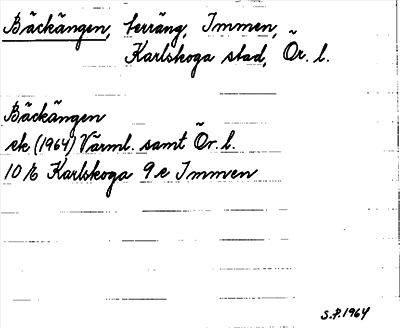 Bäckängen, terräng, Immen,
Karlskoga stad, Ör. l.
Bäckängen
ek (1964) Värml. samt Ör. l.
10 E Karlskoga 9 e Immen
S.P. 1964